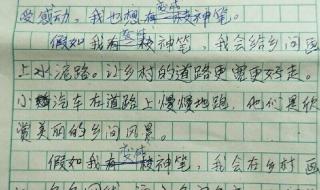 受感动，我也想变成神笔。
假如我变成神笔，我会给乡间画
上水泥路。让乡村的道路更宽更好走。
小汽车在道路上慢慢地跑，他们是欣
赏美丽的乡间风景。
假如我变成神笔，我会在乡村画